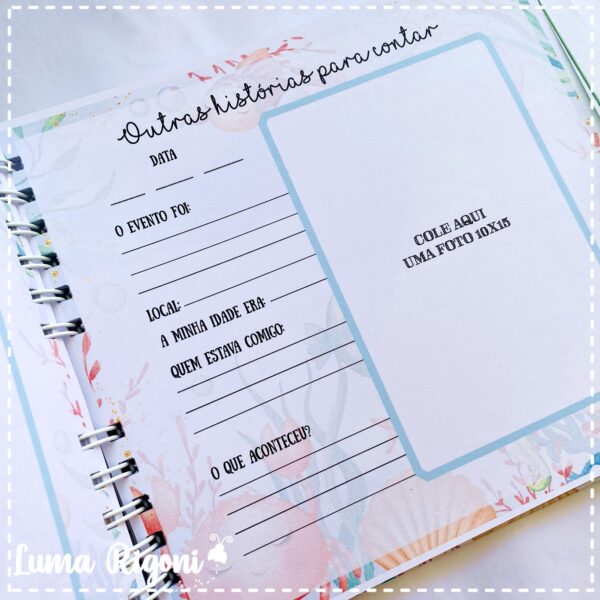 Outras histórias para contar
DATA
O EVENTO FOI:
LOCAL:
A MINHA IDADE ERA:
QUEM ESTAVA COMIGO:
O QUE ACONTECEU?
COLE AQUI
UMA FOTO 10X15
Luma Rigoni